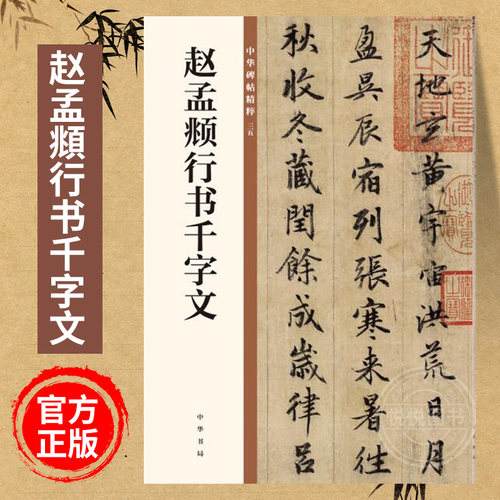 赵孟頫行书千字文
官方
正版
中华碑帖精粹 三五
赵孟頫行书千字文
中华书局
天地玄黄宇宙洪荒日月
盈昃辰宿列張寒来暑往
秋收冬藏閏餘成歲律呂
悦悦图书